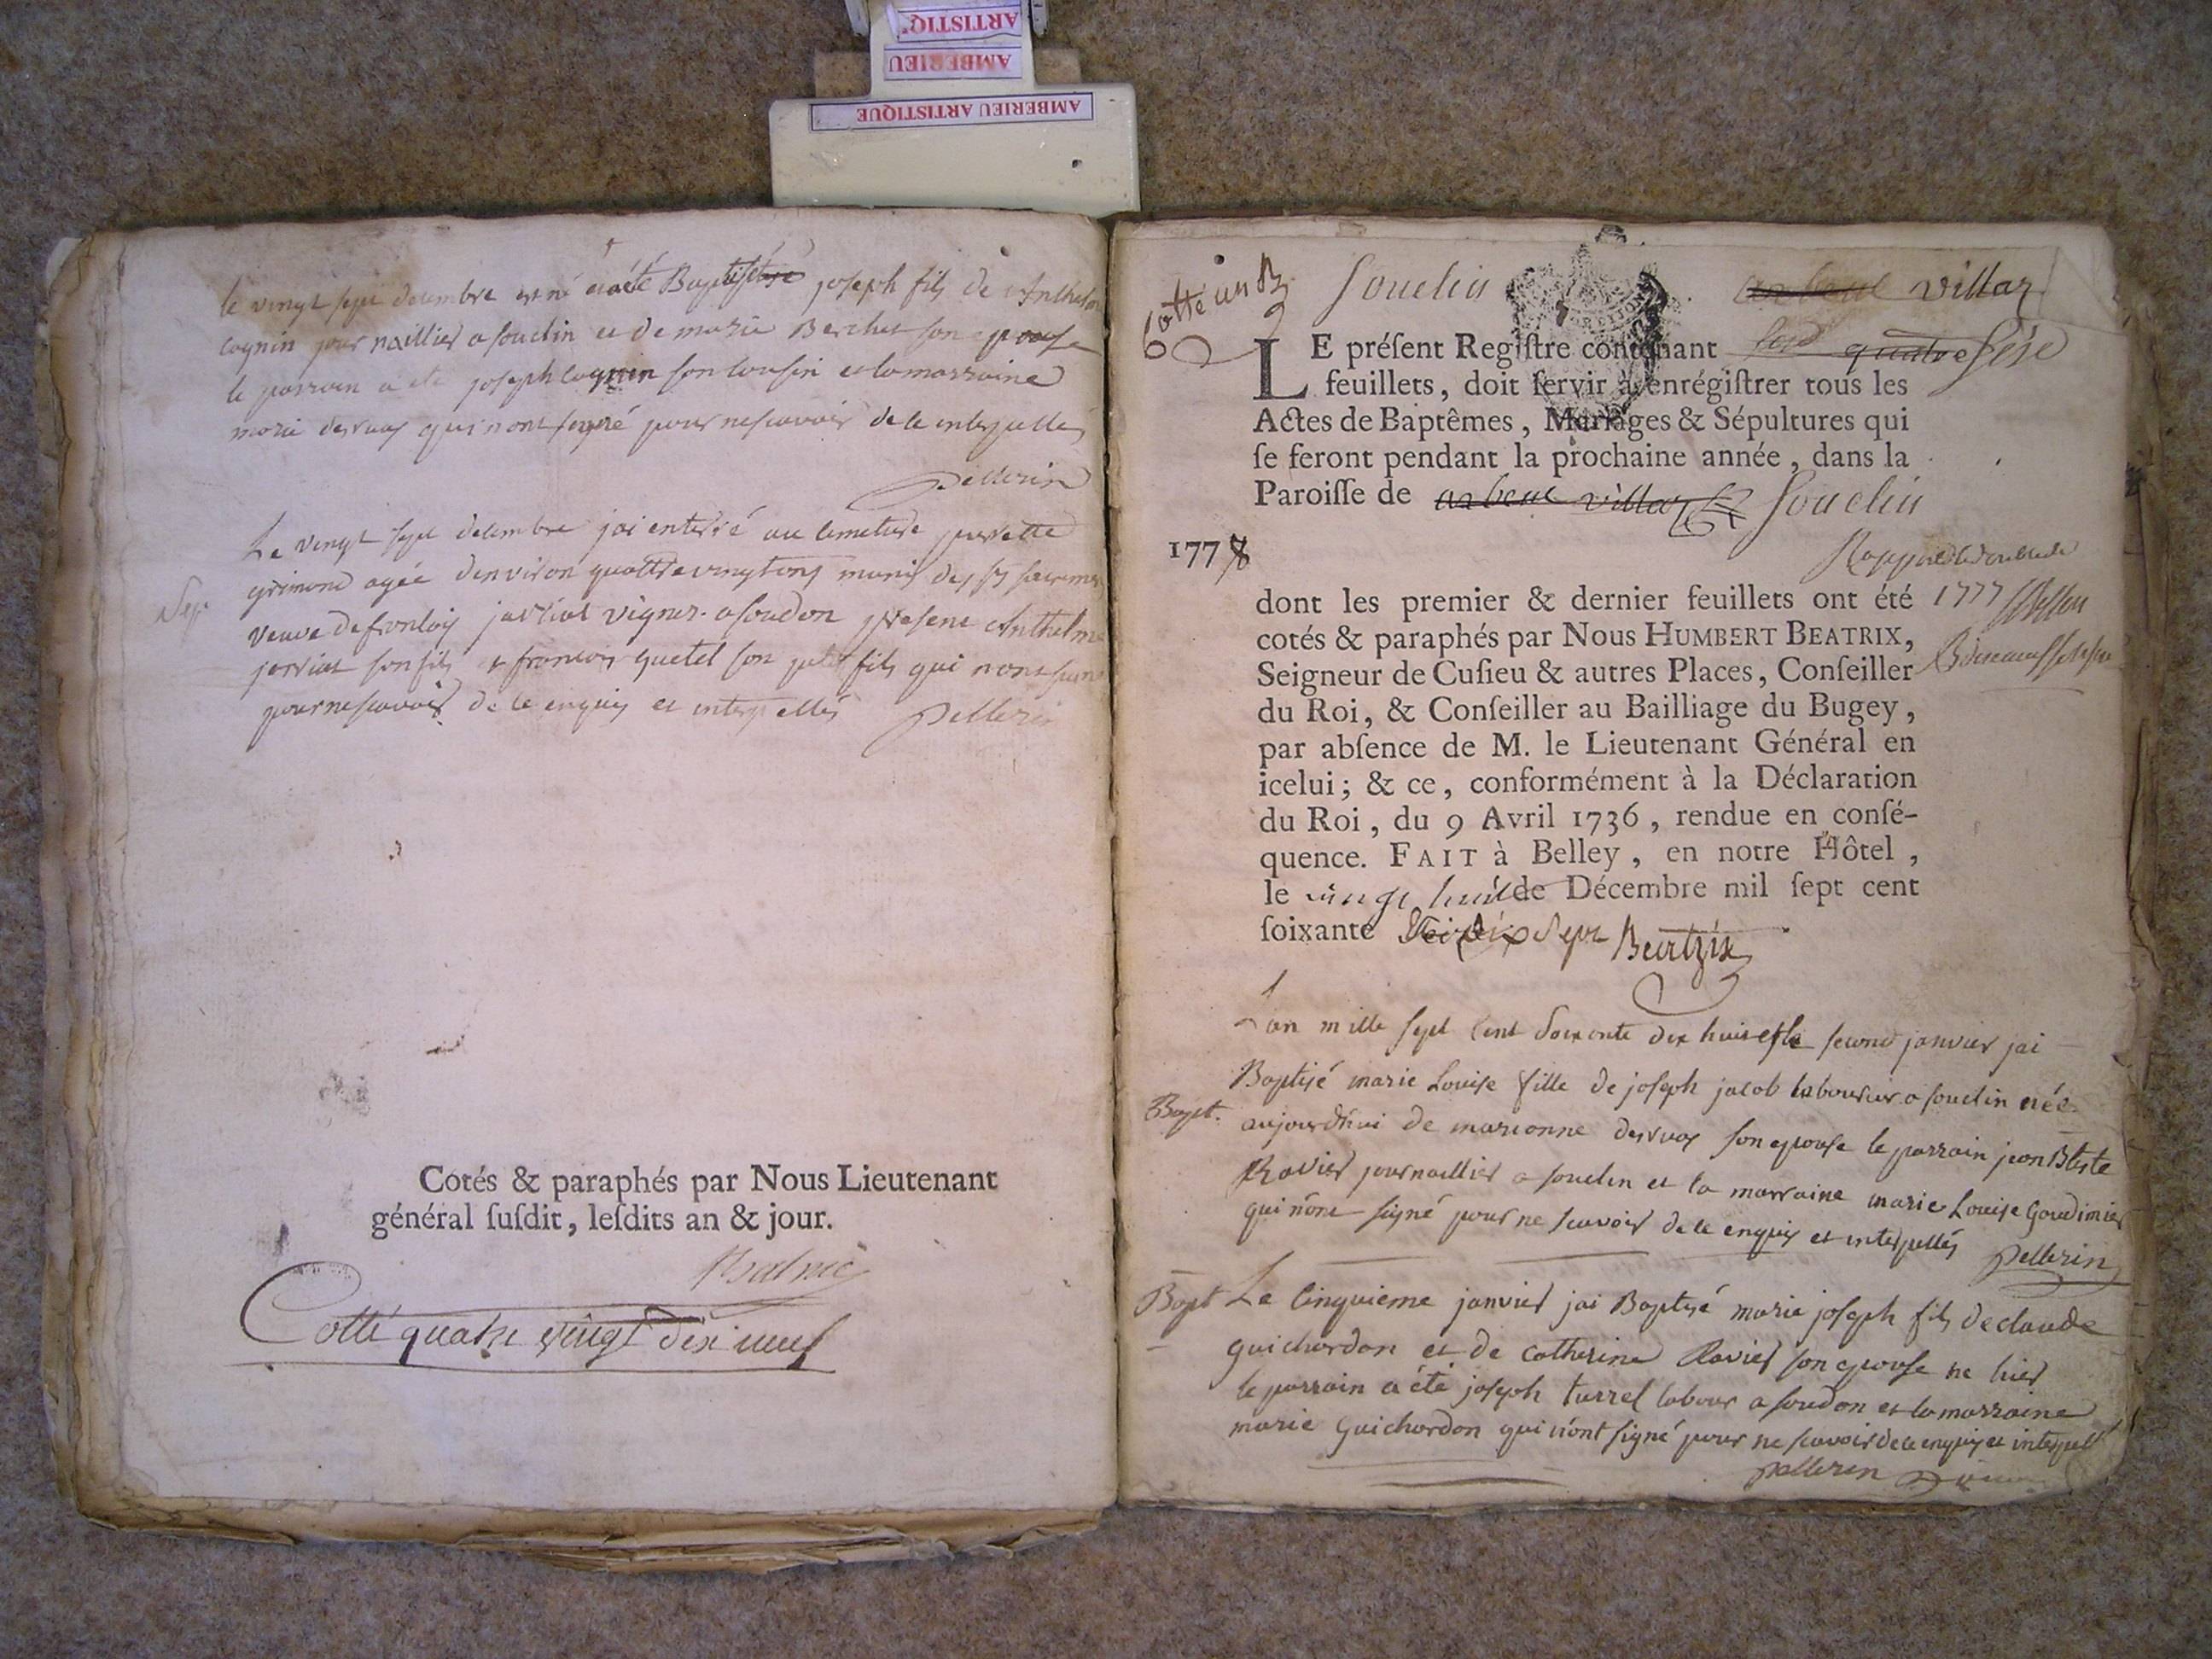 AMBERIEU ARTISTIQUE
AMBERIEU
ARTISTIQ
le vingt sept decembre est né et a été Baptisé joseph fils de Anthelme
cognin journaillier a souclin et de marie Berchet son epouse
le parrain a ete joseph cognin son cousin et la marraine
marie dervas qui nont signé pour ne scavoir de ce interpellés
pellerin
Sep.
Le vingt sept decembre jai enterré au cimetiere pierrette
grimond agée denviron quattrevingt ans munis des sts sacremen
veuve de francois vigner a soudon present Anthelme
son fils et francois quetel son petit fils qui nont signé
pour ne scavoir de ce enquis et interpellés pellerin
Cotés & paraphés par Nous Lieutenant
général ſuſdit, leſdits an & jour.
Balme
Cotté quatre vingt dix neuf
Cotté un B
Souclin
arbent villar
LE préſent Regiſtre contenant quatre ſése
feuillets, doit ſervir à enrégiſtrer tous les
Actes de Baptêmes, Mariages & Sépultures qui
ſe feront pendant la prochaine année, dans la
Paroiſſe de arbent villar Souclin
1778
dont les premier & dernier feuillets ont été 1777
cotés & paraphés par Nous HUMBERT BEATRIX,
Seigneur de Cuſieu & autres Places, Conſeiller
du Roi, & Conſeiller au Bailliage du Bugey,
par abſence de M. le Lieutenant Général en
icelui; & ce, conformément à la Déclaration
du Roi, du 9 Avril 1736, rendue en conſé-
quence. FAIT à Belley, en notre Hôtel,
le vingt huit de Décembre mil ſept cent
ſoixante dix Sept Beatrix
L'an mille sept cent soixante dix huit et le second janvier jai
Baptisé marie Louise fille de joseph jacob laboureur a souclin née
Bapt.
aujourdhui de marianne dervas son epouse le parrain jean Btste
Ravier journaillier a souclin et la marraine marie Louise Goudimier
qui nont signé pour ne scavoir de ce enquis et interpellés pellerin
Bapt Le cinquieme janvier jai Baptisé marie joseph fils de claude
guichardon et de catherine Ravier son epouse ne hier
le parrain a été joseph turrel labour a soudon et la marraine
marie Guichardon qui nont signé pour ne scavoir de ce enquis et interpell
pellerin